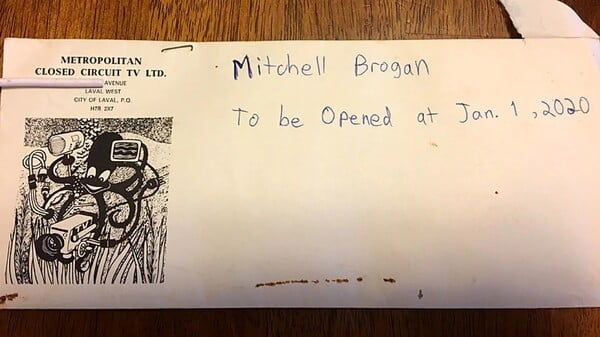 METROPOLITAN
CLOSED CIRCUIT TV LTD.
AVENUE
LAVAL WEST
CITY OF LAVAL, P.Q.
H7R 3X7
Mitchell Brogan
To be Opened at Jan. 1, 2020